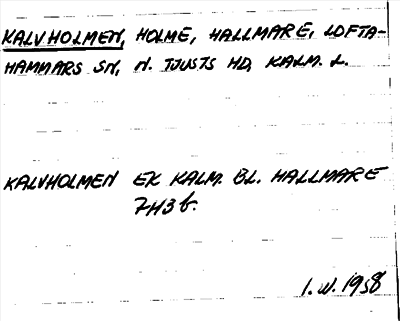 KALVHOLMEN, HOLME, HALLMARE, LOFTA-
HAMMARS SN, N. TJUSTS HD, KALM. L.
KALVHOLMEN EK KALM. BL. HALLMARE
7H3b.
I.W. 1958